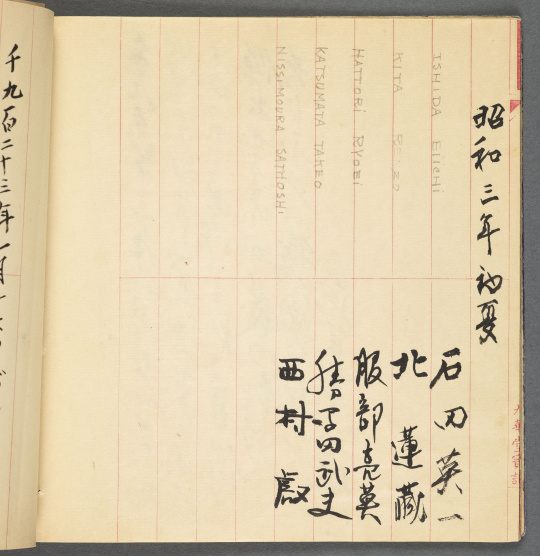 昭和三年初夏
ISHIDA EIICHI
石田英一
KITA
北 蓮蔵
HATTORI RYOEI
服部亮英
KATSUMATA TAKEO
勝田武夫
NISSIMOURA SATHOSHI
西村
千九百二十三年一月十六日